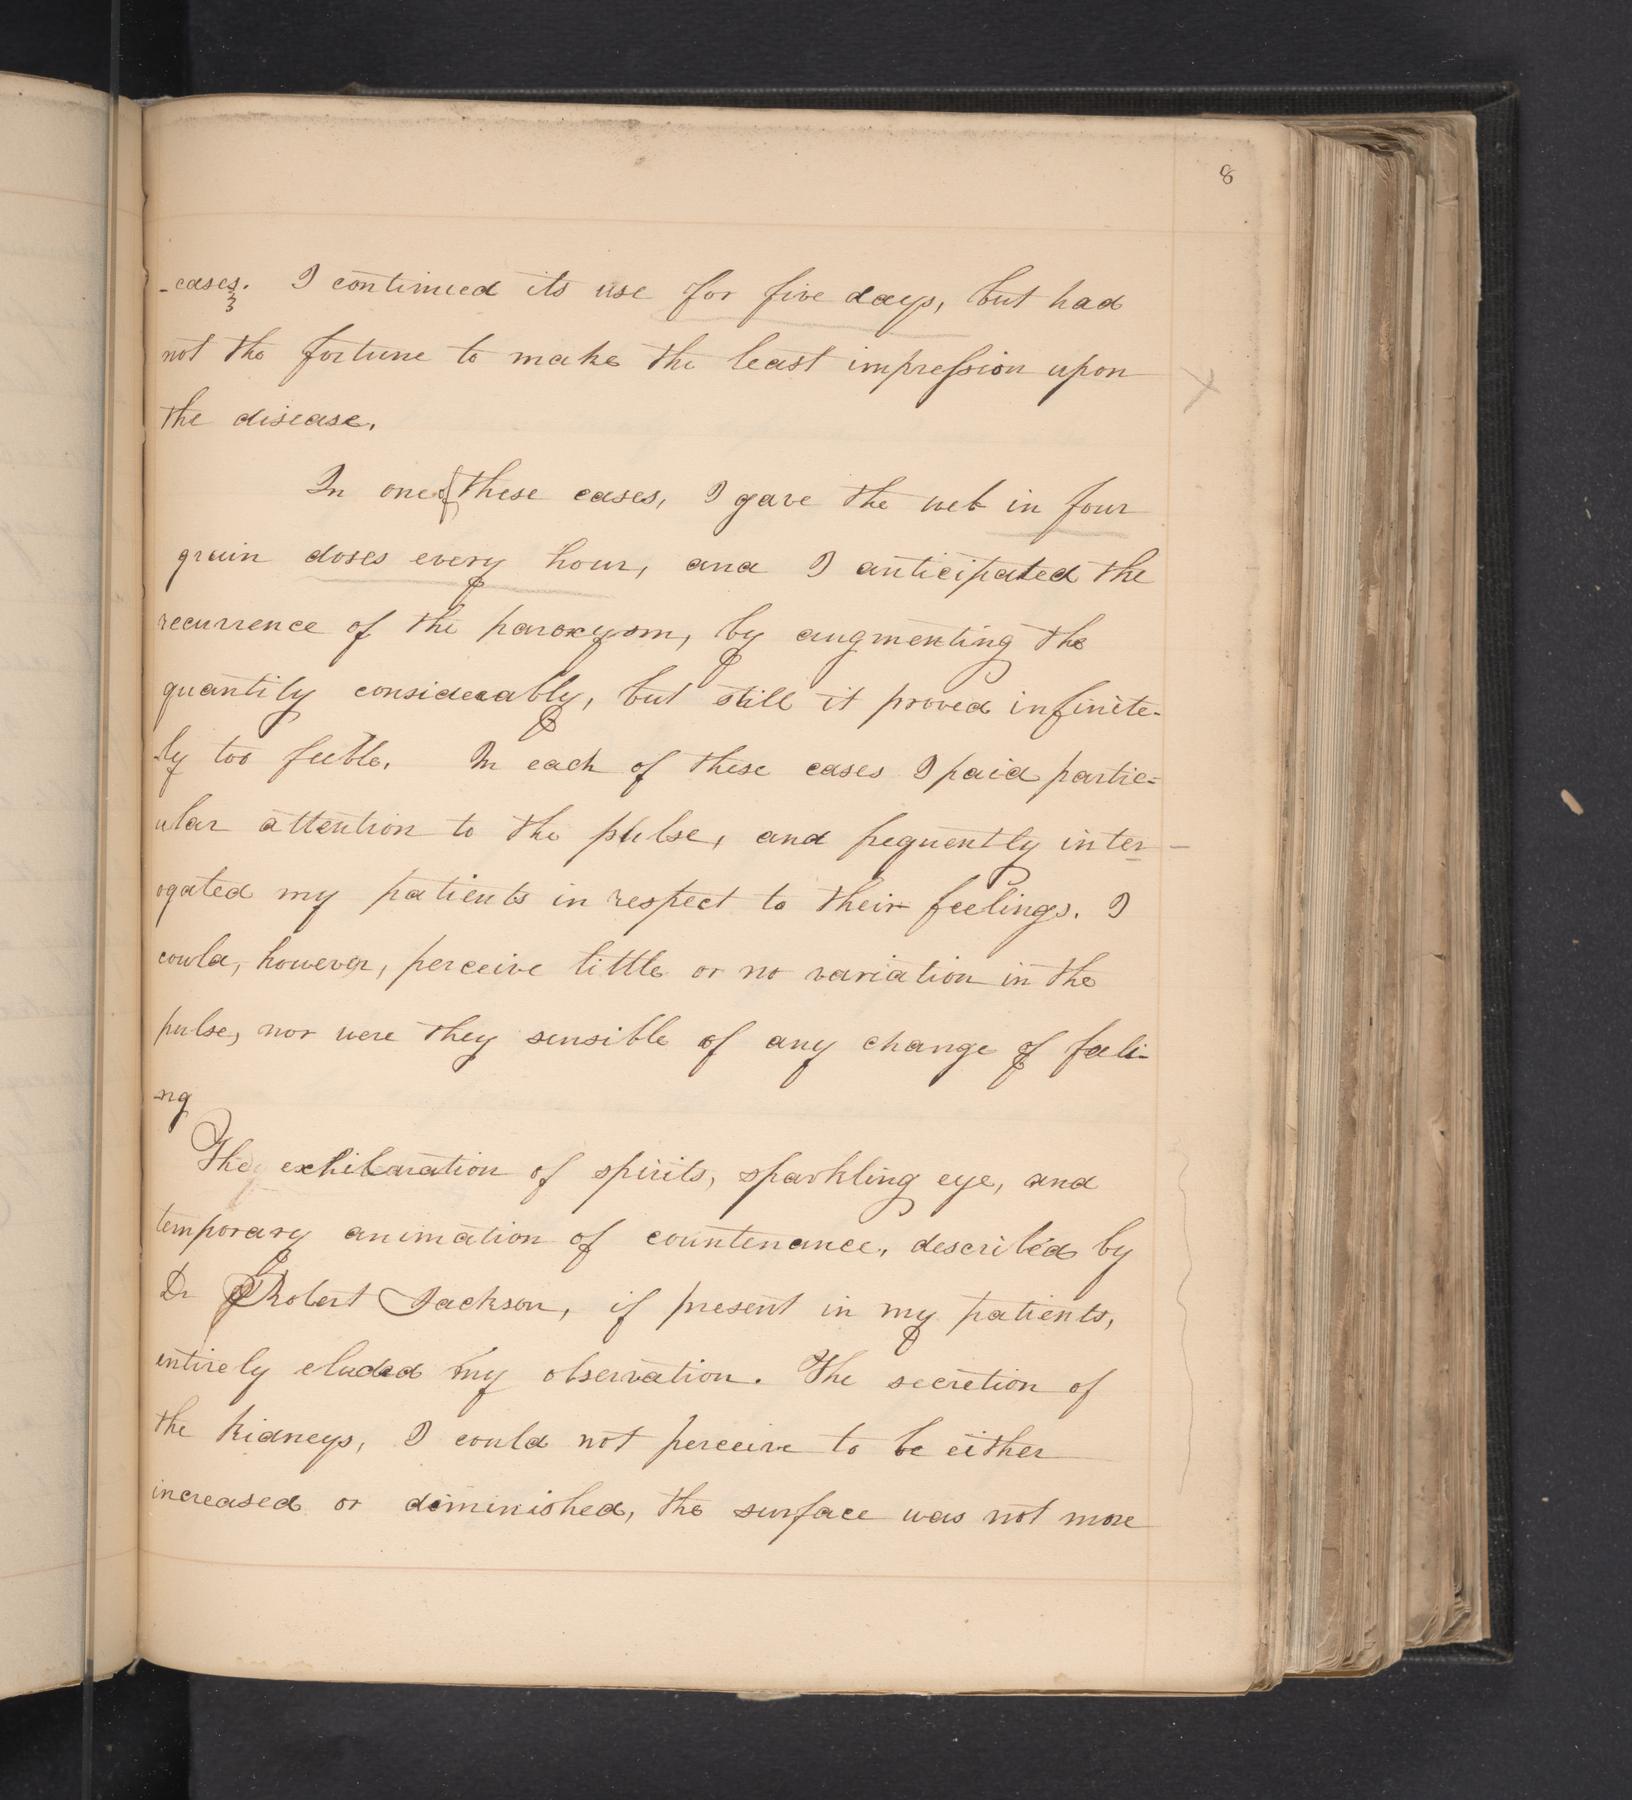 8
-cases. I continued its use for five days, but had
not the fortune to make the least impression upon
the disease.
In one of these cases, I gave the web in four
grain doses every hour, and I anticipated the
recurrence of the paroxysm, by augmenting the
quantity considerably, but still it proved infinite-
ly too feeble. In each of these cases I paid partic=
ular attention to the pulse, and frequently inter-
ogated my patients in respect to their feelings. I
could, however, perceive little or no variation in the
pulse, nor were they sensible of any change of feeli-
ng
The exhilaration of spirits, sparkling eye, and
temporary animation of countenance, described by
Dr Robert Jackson, if present in my patients,
entirely eluded my observation. The secretion of
the kidneys, I could not perceive to be either
increased or diminished, the surface was not more